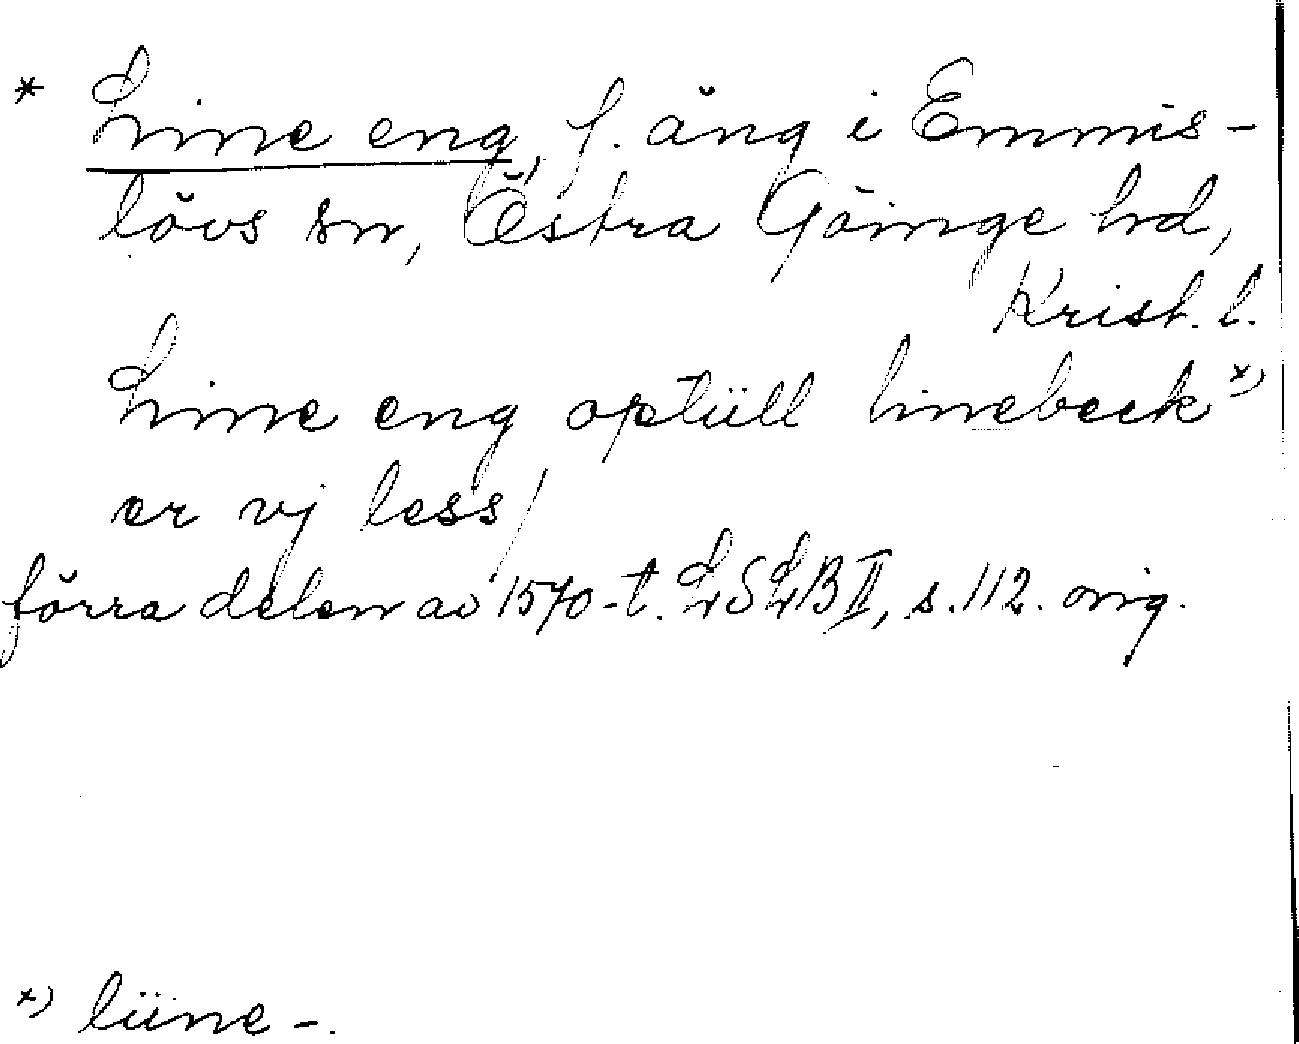 * Line eng, f. äng i Emmis-
lövs sn, Östra Göinge hd,
Krist. l.
Line eng optüll linebeck x)
er vj less/
förra delen av 1570-t. LSLB II, s. 112. orig.
x) liine -.